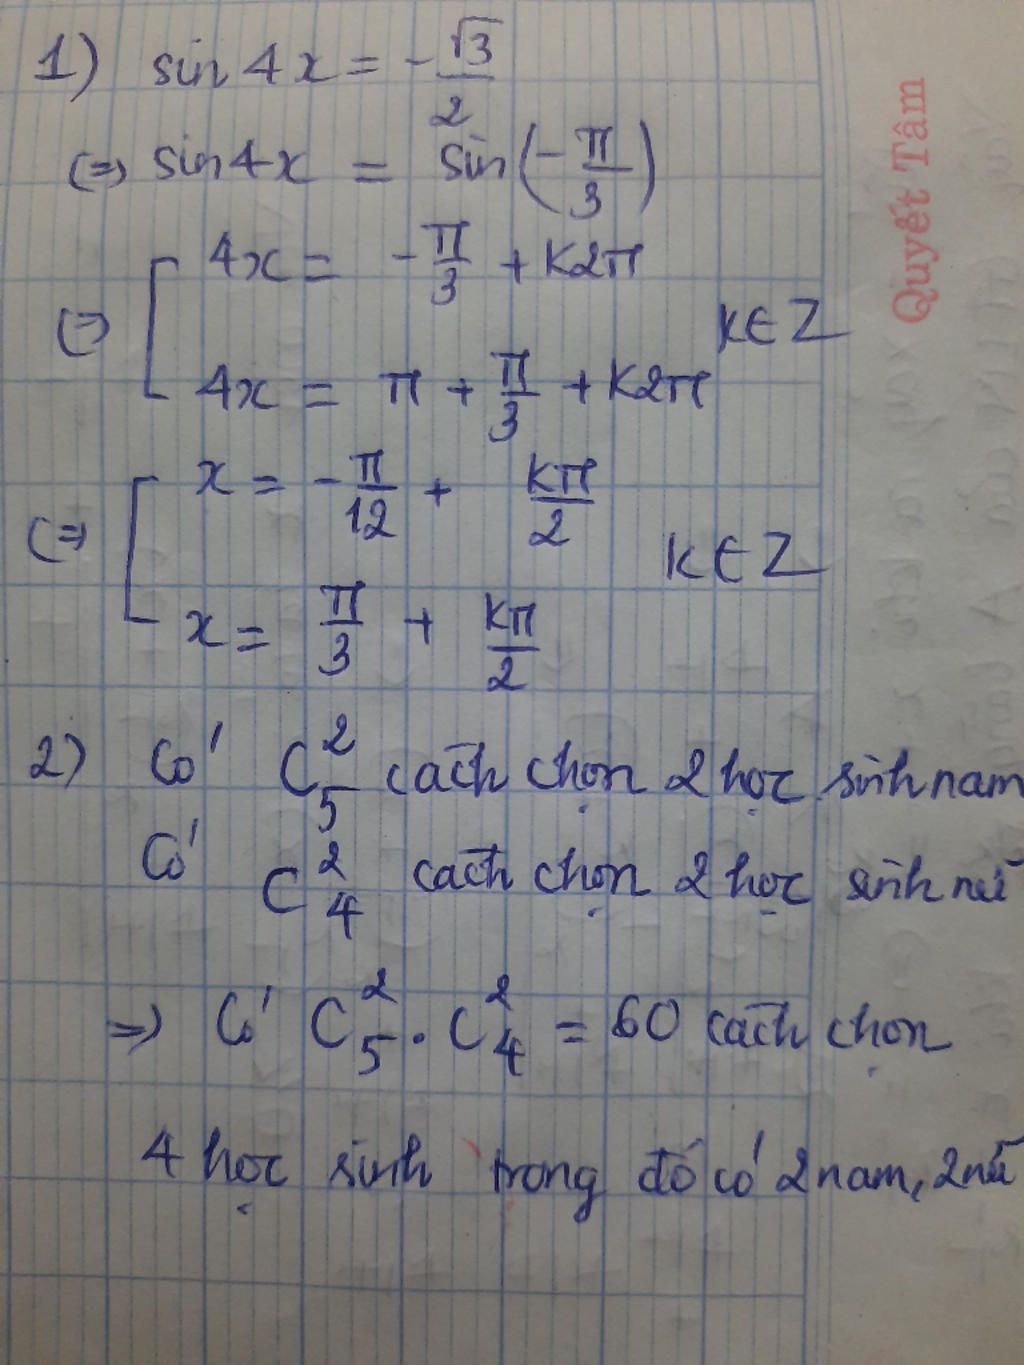 1) sin 4x = -√3/2
(=) sin 4x = sin(-π/3)
(=) [ 4x = -π/3 + K2π
K∈Z
4x = π + π/3 + K2π
(=) [ x = -π/12 + Kπ/2
K∈Z
x = π/3 + Kπ/2
2) Có C₅² cách chọn 2 học sinh nam
Có C₄² cách chọn 2 học sinh nữ
=) Có C₅² . C₄² = 60 cách chọn
4 học sinh trong đó có 2 nam, 2 nữ
Quyết Tâm